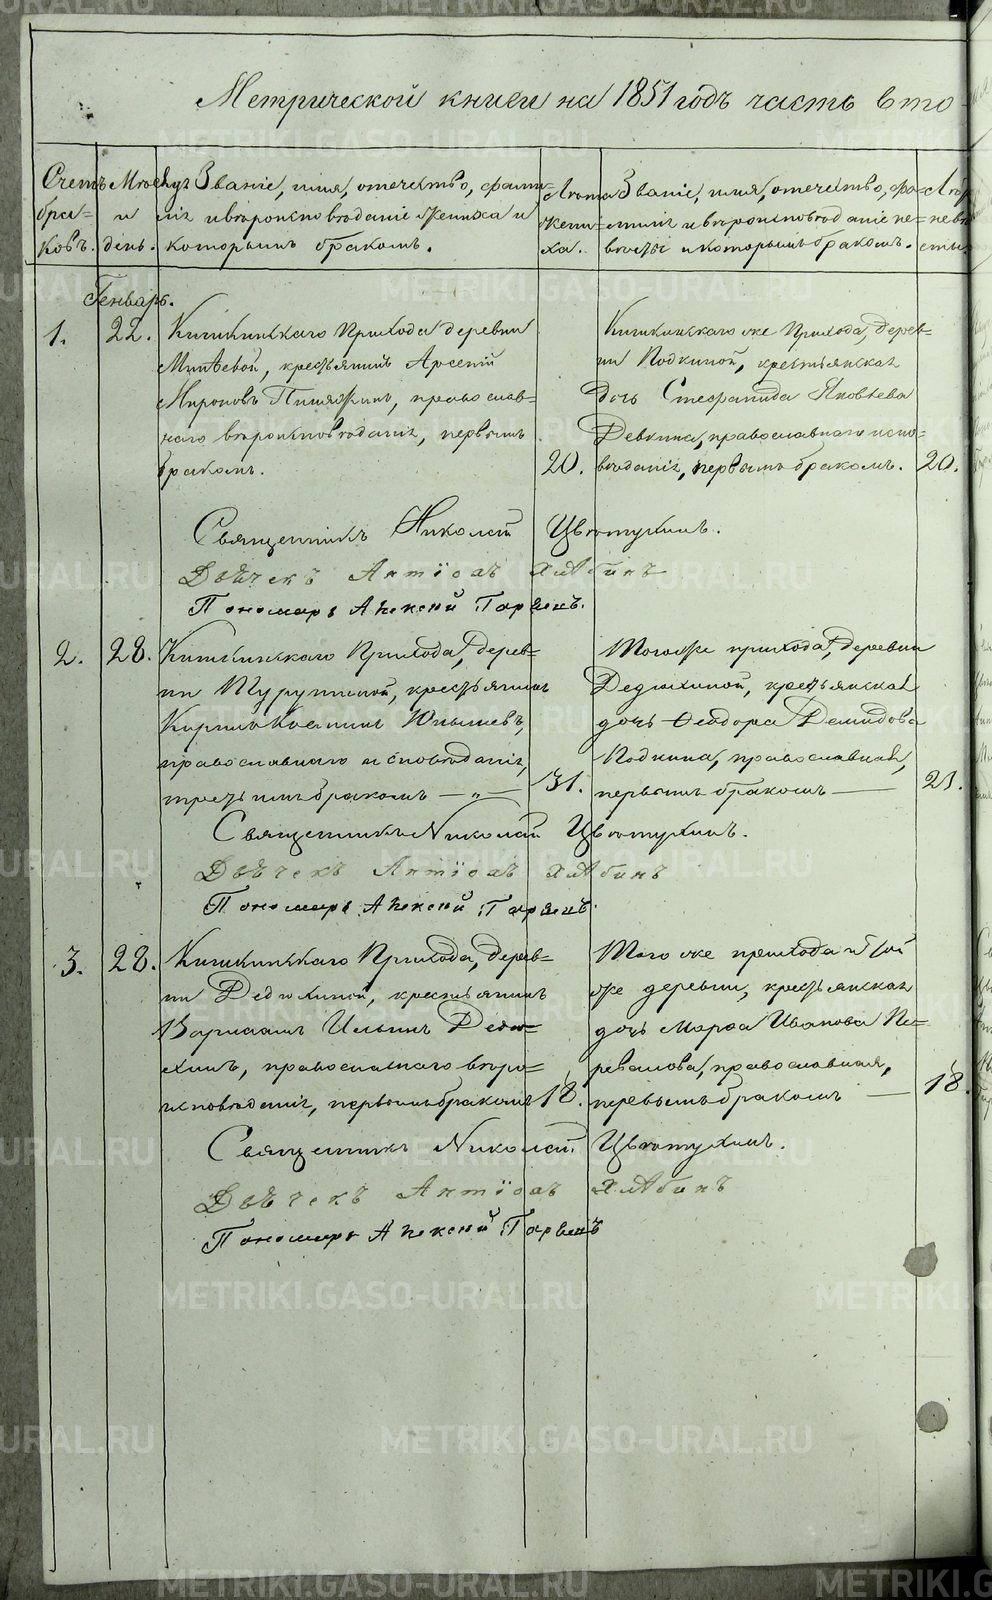 Метрической книги на 1851 годъ часть вто
Счетъ бра-ковъ.
Месяцъ и день.
Званіе, имя, отечество, фами-
лія и вѣроисповѣданіе жениха и
которымъ бракомъ.
Лета жени-ха.
Званіе, имя, отечество, фа-
милія и вѣроисповѣданіе не-
вѣсты и которымъ бракомъ.
Лѣта невѣсты.
Генварь.
1. 22.
Кишкинскаго Прихода деревни
крестьянинъ Арсений
Мироновъ православ-
наго вѣроисповѣданія, первымъ
бракомъ. 20.
Кишкинскаго же Прихода, дерев-
ни Подкиной, крестьянская
дочь Стефанида Яковлева
Девкина, православнаго испо-
вѣданія, первымъ бракомъ. 20.
Священникъ Николай Цвѣтухинъ.
Дьячекъ Антіохъ Хлѣбинъ
Пономарь Алексей
2. 28.
Кишкинскаго Прихода, дерев-
ни крестьянинъ
православнаго исповѣданія,
третьимъ бракомъ — „ — 31.
Тогоже прихода, деревни
Дедюхиной, крестьянская
дочь Ѳеодора Демидова
Подкина, православная,
первымъ бракомъ — 21.
Священникъ Николай Цвѣтухинъ.
Дьячекъ Антіохъ Хлѣбинъ
Пономарь Алексей
3. 28.
Кишкинскаго Прихода, дерев-
ни Дедюхиной, крестьянинъ
Варлаамъ Ильинъ Дедю-
хинъ, православнаго вѣро-
исповѣданія, первымъ бракомъ 18.
Того же прихода и той
же деревни, крестьянская
дочь Марфа Иванова Пе-
ревалова, православная,
первымъ бракомъ — 18.
Священникъ Николай Цвѣтухинъ.
Дьячекъ Антіохъ Хлѣбинъ
Пономарь Алексей
METRIKI.GASO-URAL.RU